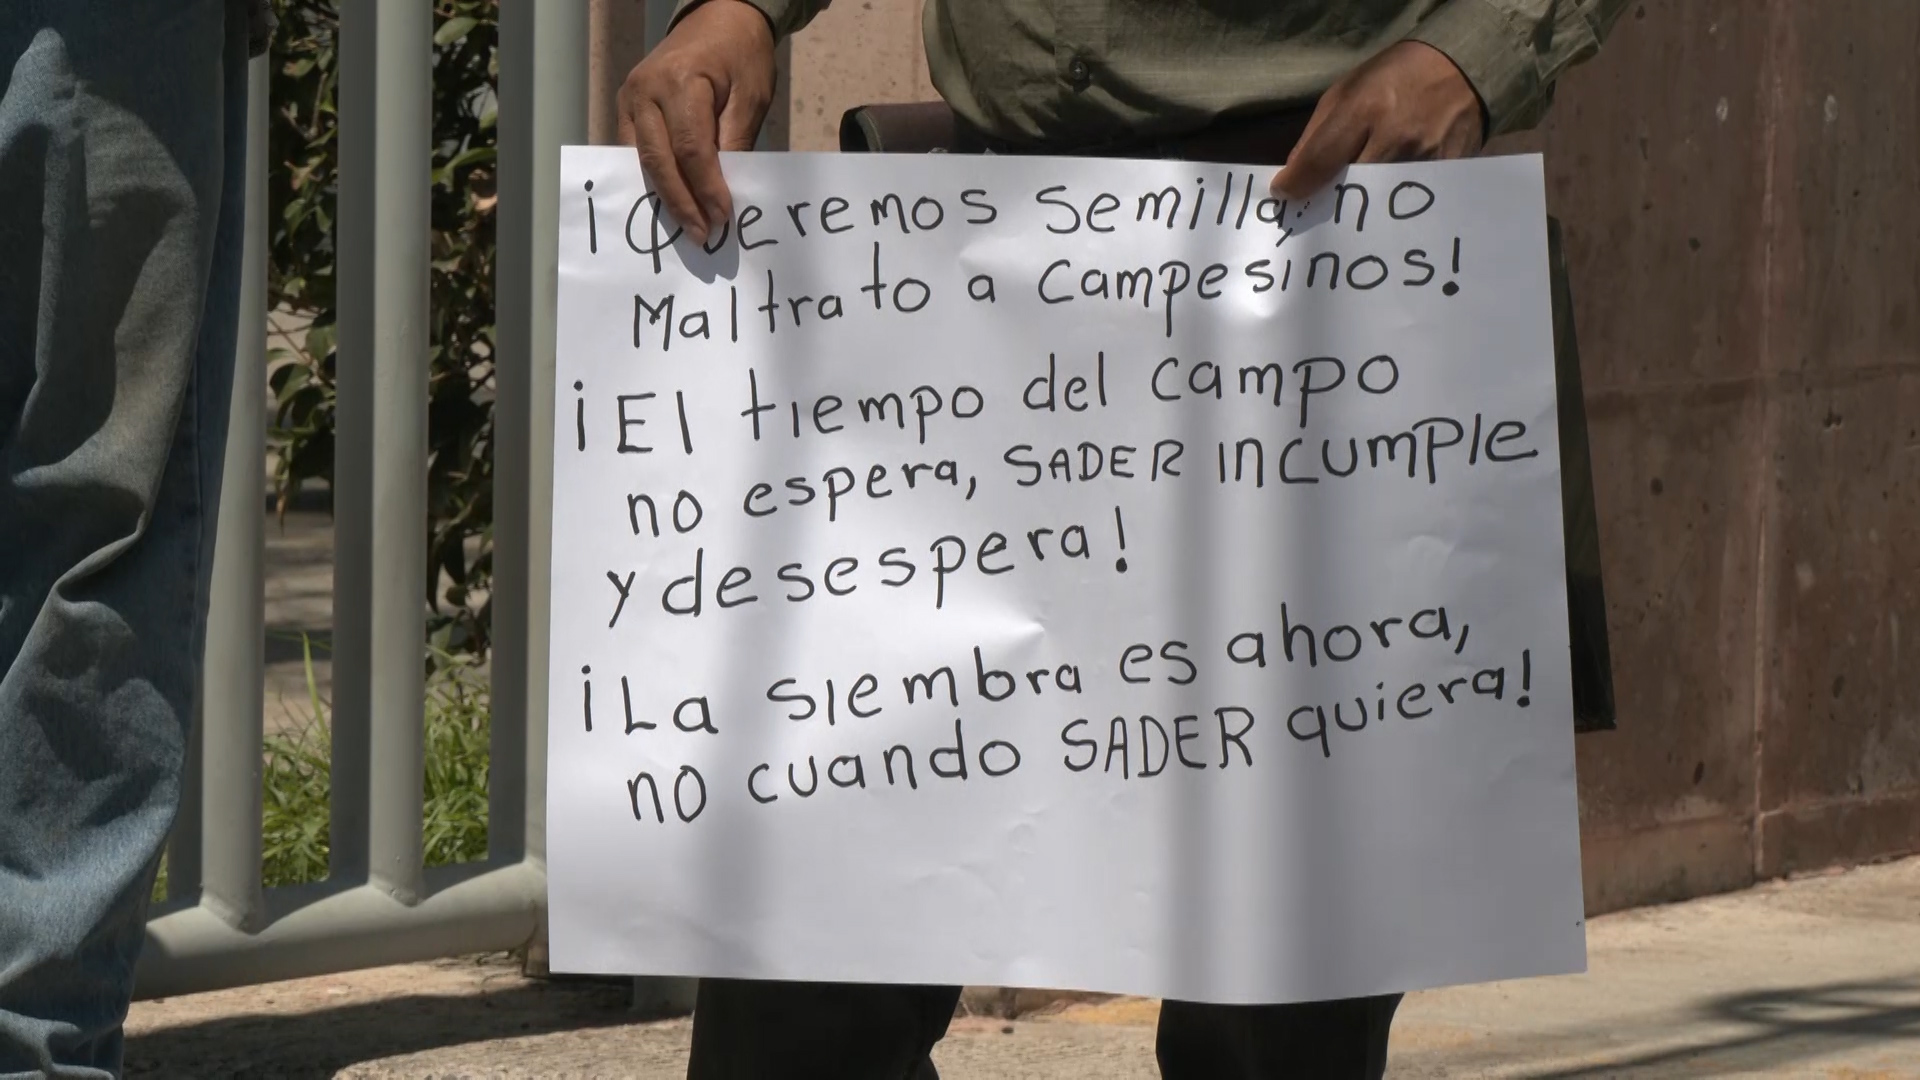 ¡Queremos semilla, no
Maltrato a campesinos!
¡El tiempo del campo
no espera, SADER incumple
y desespera!
¡La siembra es ahora,
no cuando SADER quiera!